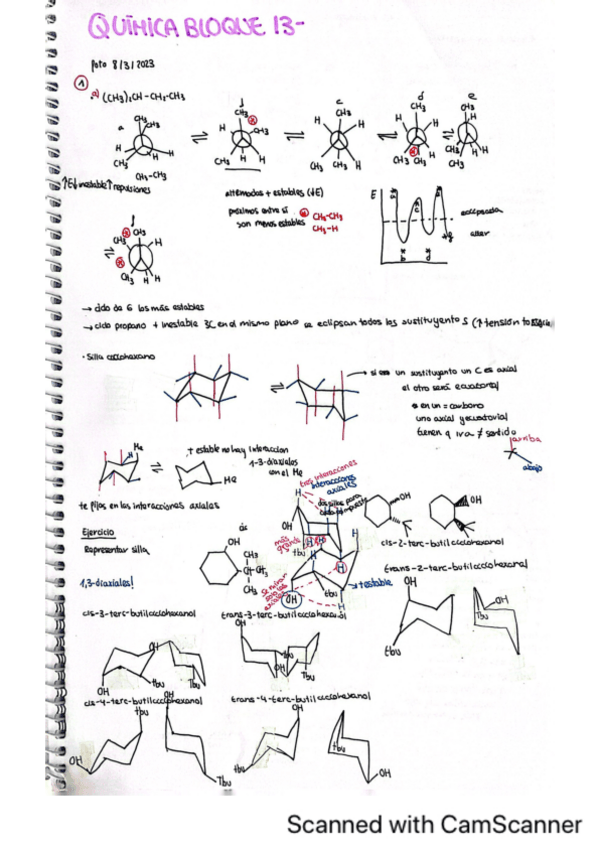 QUÍMICA BLOQUE 13-
foto 8/3/2023
1
a) (CH3)2CH-CH2-CH3
a
CH3
CH3
H
H
H
CH3
CH2-CH3
b
CH3
H
CH3
CH3
H
H
c
CH3
H
H
CH3
CH3
H
d
CH3
H
H
CH3
CH3
e
CH3
H
H
CH3
H
CH3
↑E↓ inestable↑ repulsiones
alternadas + estables (↓E)
próximos entre sí
son menos estables
CH3-CH3
CH3-H
E
a
c
b
d
eclipsada
alter
f
CH3
CH3
H
CH3
H
H
→ ciclo de 6 los más estables
→ ciclo propano + inestable 3C en el mismo plano se eclipsan todos los sustituyentes (↑ tensión
· Silla ciclohexano
→ si en un sustituyente un C es axial
el otro será ecuatorial
* en un = carbono
uno axial y ecuatorial
tienen q ir a ≠ sentido
arriba
abajo
Me
+ estable no hay interaccion
1-3-diaxiales
con el Me
Me
te fijas en las interacciones axiales
tres interacciones
interacciones
axiales
H
OH
más
grande
H
H
tbu
H
H
OH
tbu
H
+estable
OH
OH
cis-2-terc-butilciclohexanol
trans-2-terc-butilciclohexanol
Ejercicio
Representar silla
cis
OH
CH3
C-CH3
CH3
1,3-diaxiales!
OH
tbu
OH
Tbu
cis-3-terc-butilciclohexanol
trans-3-terc-butilciclohexanol
OH
OH
tbu
Tbu
OH
tbu
OH
Tbu
cis-4-terc-butilciclohexanol
trans-4-terc-butilciclohexanol
tbu
OH
OH
Tbu
OH
tbu
tbu
OH
Scanned with CamScanner